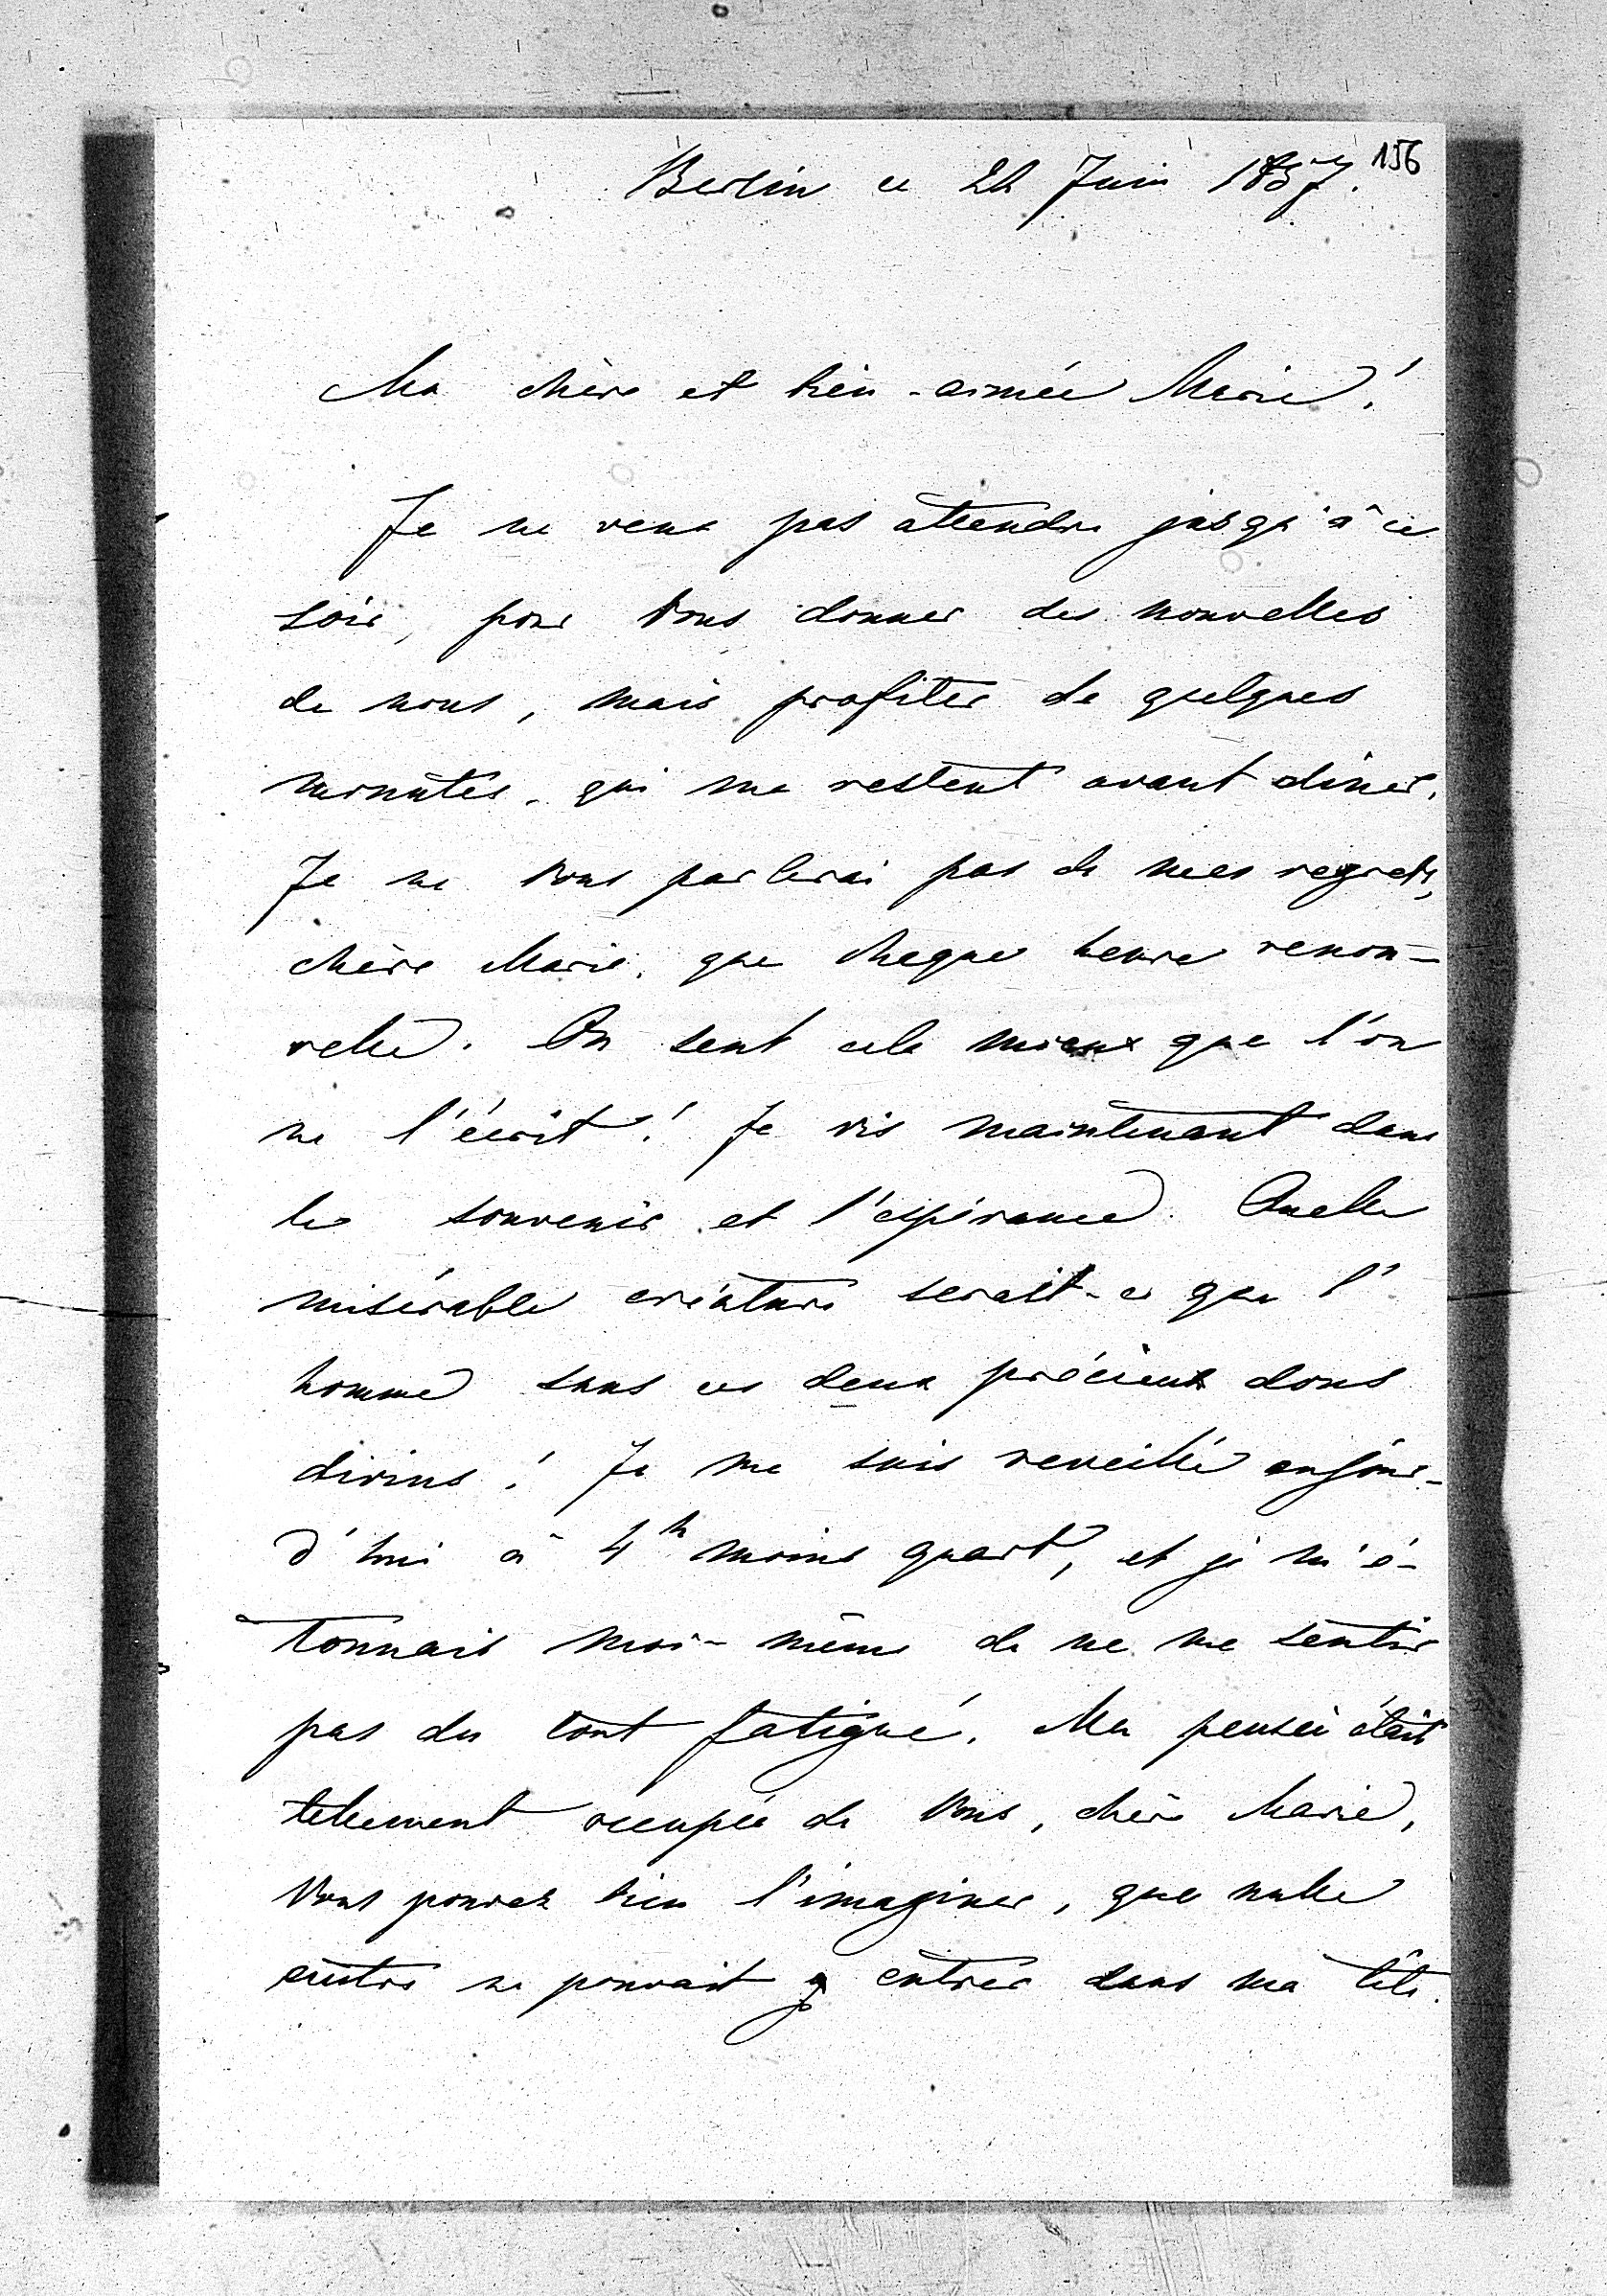 156
Berlin ce 22 Juin 1857.
Ma chère et bien-aimée Marie!
Je ne veux pas attendre jusqu'à ce
soir, pour Vous donner des nouvelles
de nous, mais profiter de quelques
minutes, qui me restent avant diner.
Je ne Vous parlerai pas de mes regrets,
chère Marie, que chaque heure renou-
velle. On sent cela mieux que l'on
ne l'écrit! Je vis maintenant dans
le souvenir et l'espérance. Quelle
misérable créature serait-ce que l'
homme sans ces deux précieux dons
divins! Je me suis reveillé aujour-
d'hui à 4h moins quart, et je m'é-
tonnais moi-même de ne me sentir
pas du tout fatigué. Ma pensée était
tellement occupée de Vous, chère Marie,
Vous pouvez bien l'imaginer, que nulle
autre ne pouvait y entrer dans ma tête.